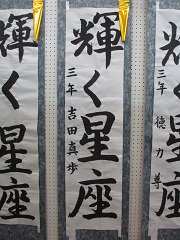 輝く星座
三年 徳力尊
輝く星座
三年 吉田真歩
輝く星座